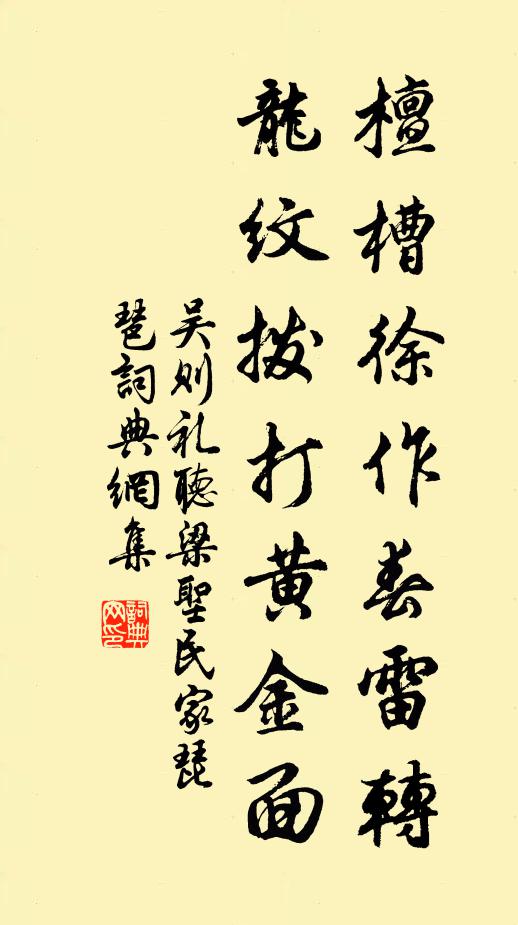 檀槽徐作春雷轉
龍紋撥打黄金面
吴则礼聽梁聖民家琵
琶詞典網集
詞典
网印